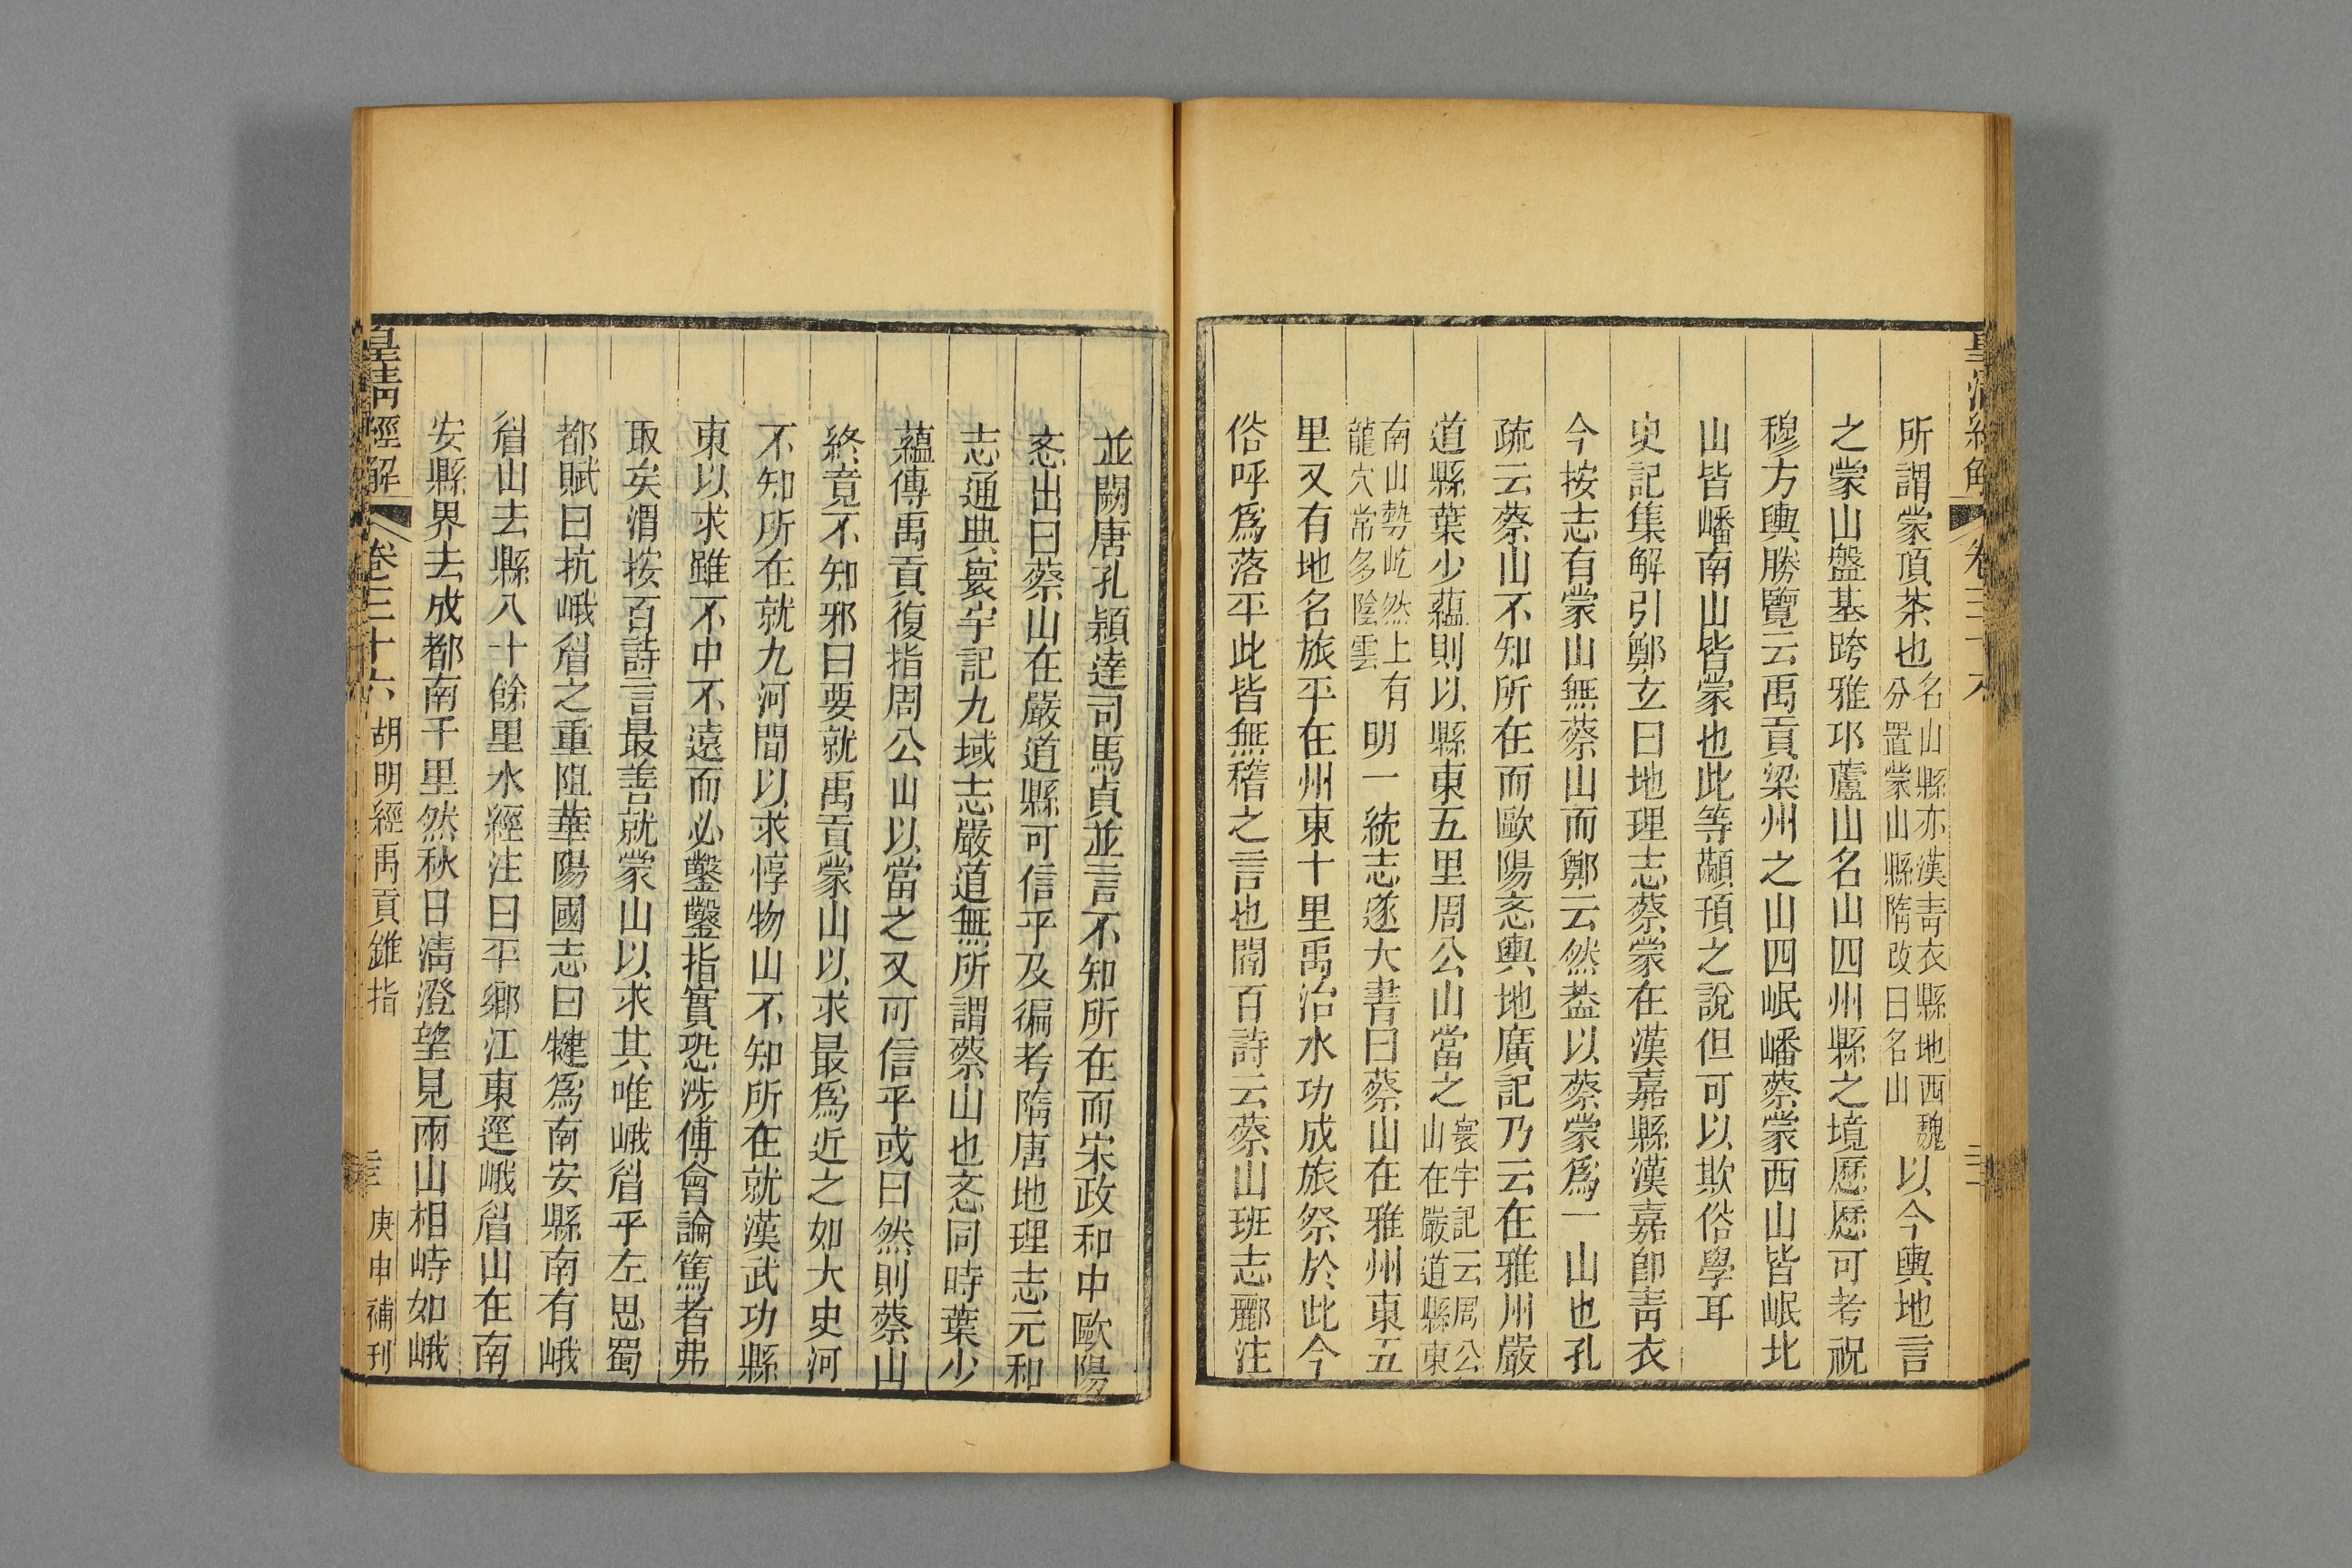 所謂蒙頂茶也名山縣亦漢靑衣縣地西魏分置蒙山縣隋改曰名山以今輿地言
之蒙山盤基跨雅邛蘆山名山四州縣之境歷歷可考祝
穆方輿勝覽云禹貢梁州之山四岷嶓蔡蒙西山皆岷北
山皆嶓南山皆蒙也此等顢頇之說但可以欺俗學耳
史記集解引鄭玄曰地理志蔡蒙在漢嘉縣漢嘉卽靑衣
今按志有蒙山無蔡山而鄭云然葢以蔡蒙爲一山也孔
疏云蔡山不知所在而歐陽忞輿地廣記乃云在雅州嚴
道縣葉少蘊則以縣東五里周公山當之寰宇記云周公山在嚴道縣東
南山勢屹然上有龍穴常多陰雲明一統志遂大書曰蔡山在雅州東五
里又有地名旅平在州東十里禹治水功成旅祭於此今
俗呼爲落平此皆無稽之言也閻百詩云蔡山班志酈注
並闕唐孔穎達司馬貞並言不知所在而宋政和中歐陽
忞出曰蔡山在嚴道縣可信乎及徧考隋唐地理志元和
志通典寰宇記九域志嚴道無所謂蔡山也忞同時葉少
蘊傳禹貢復指周公山以當之又可信乎或曰然則蔡山
終竟不知邪曰要就禹貢蒙山以求最爲近之如大史河
不知所在就九河間以求惇物山不知所在就漢武功縣
東以求雖不中不遠而必鑿鑿指實恐涉傅會論篤者弗
取矣渭按百詩言最善就蒙山以求其唯峨眉乎左思蜀
都賦曰抗峨眉之重阻華陽國志曰犍爲南安縣南有峨
眉山去縣八十餘里水經注曰平鄕江東逕峨眉山在南
安縣界去成都南千里然秋日淸澄望見兩山相峙如峨
皇淸經解 卷三十六 胡明經禹貢錐指 三 庚申補刊